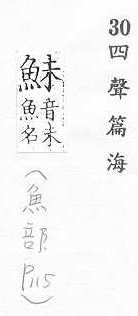 30四聲篇海
鮇
音未
魚名
(魚部 P115)